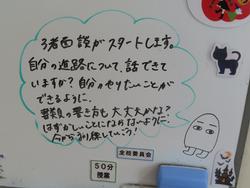 3者面談がスタートします。
自分の進路について、話できて
いますか?自分のやりたいことが
できるように、
書き方も大丈夫かな?
はずかしいことにならないように、
今から
全校委員会
50分
授業